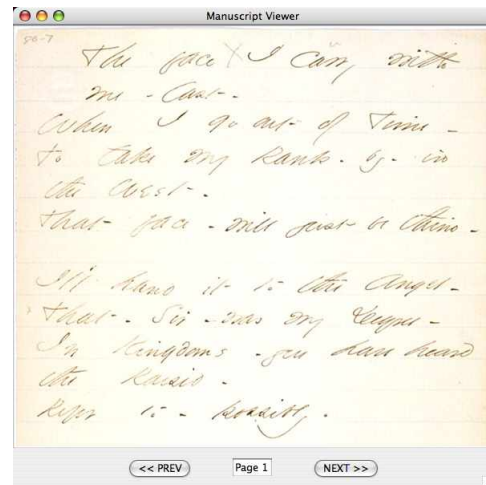 Manuscript Viewer
80-7
The face I Carry with
me - last -
When I go out of Time -
To take my Rank - by - in
the West -
That face - will just be thine -
I'll hand it to the Angel -
That - Sir - was my Degree -
In Kingdoms - you have heard
the Raised -
Refer to - possibly.
<< PREV
Page 1
NEXT >>